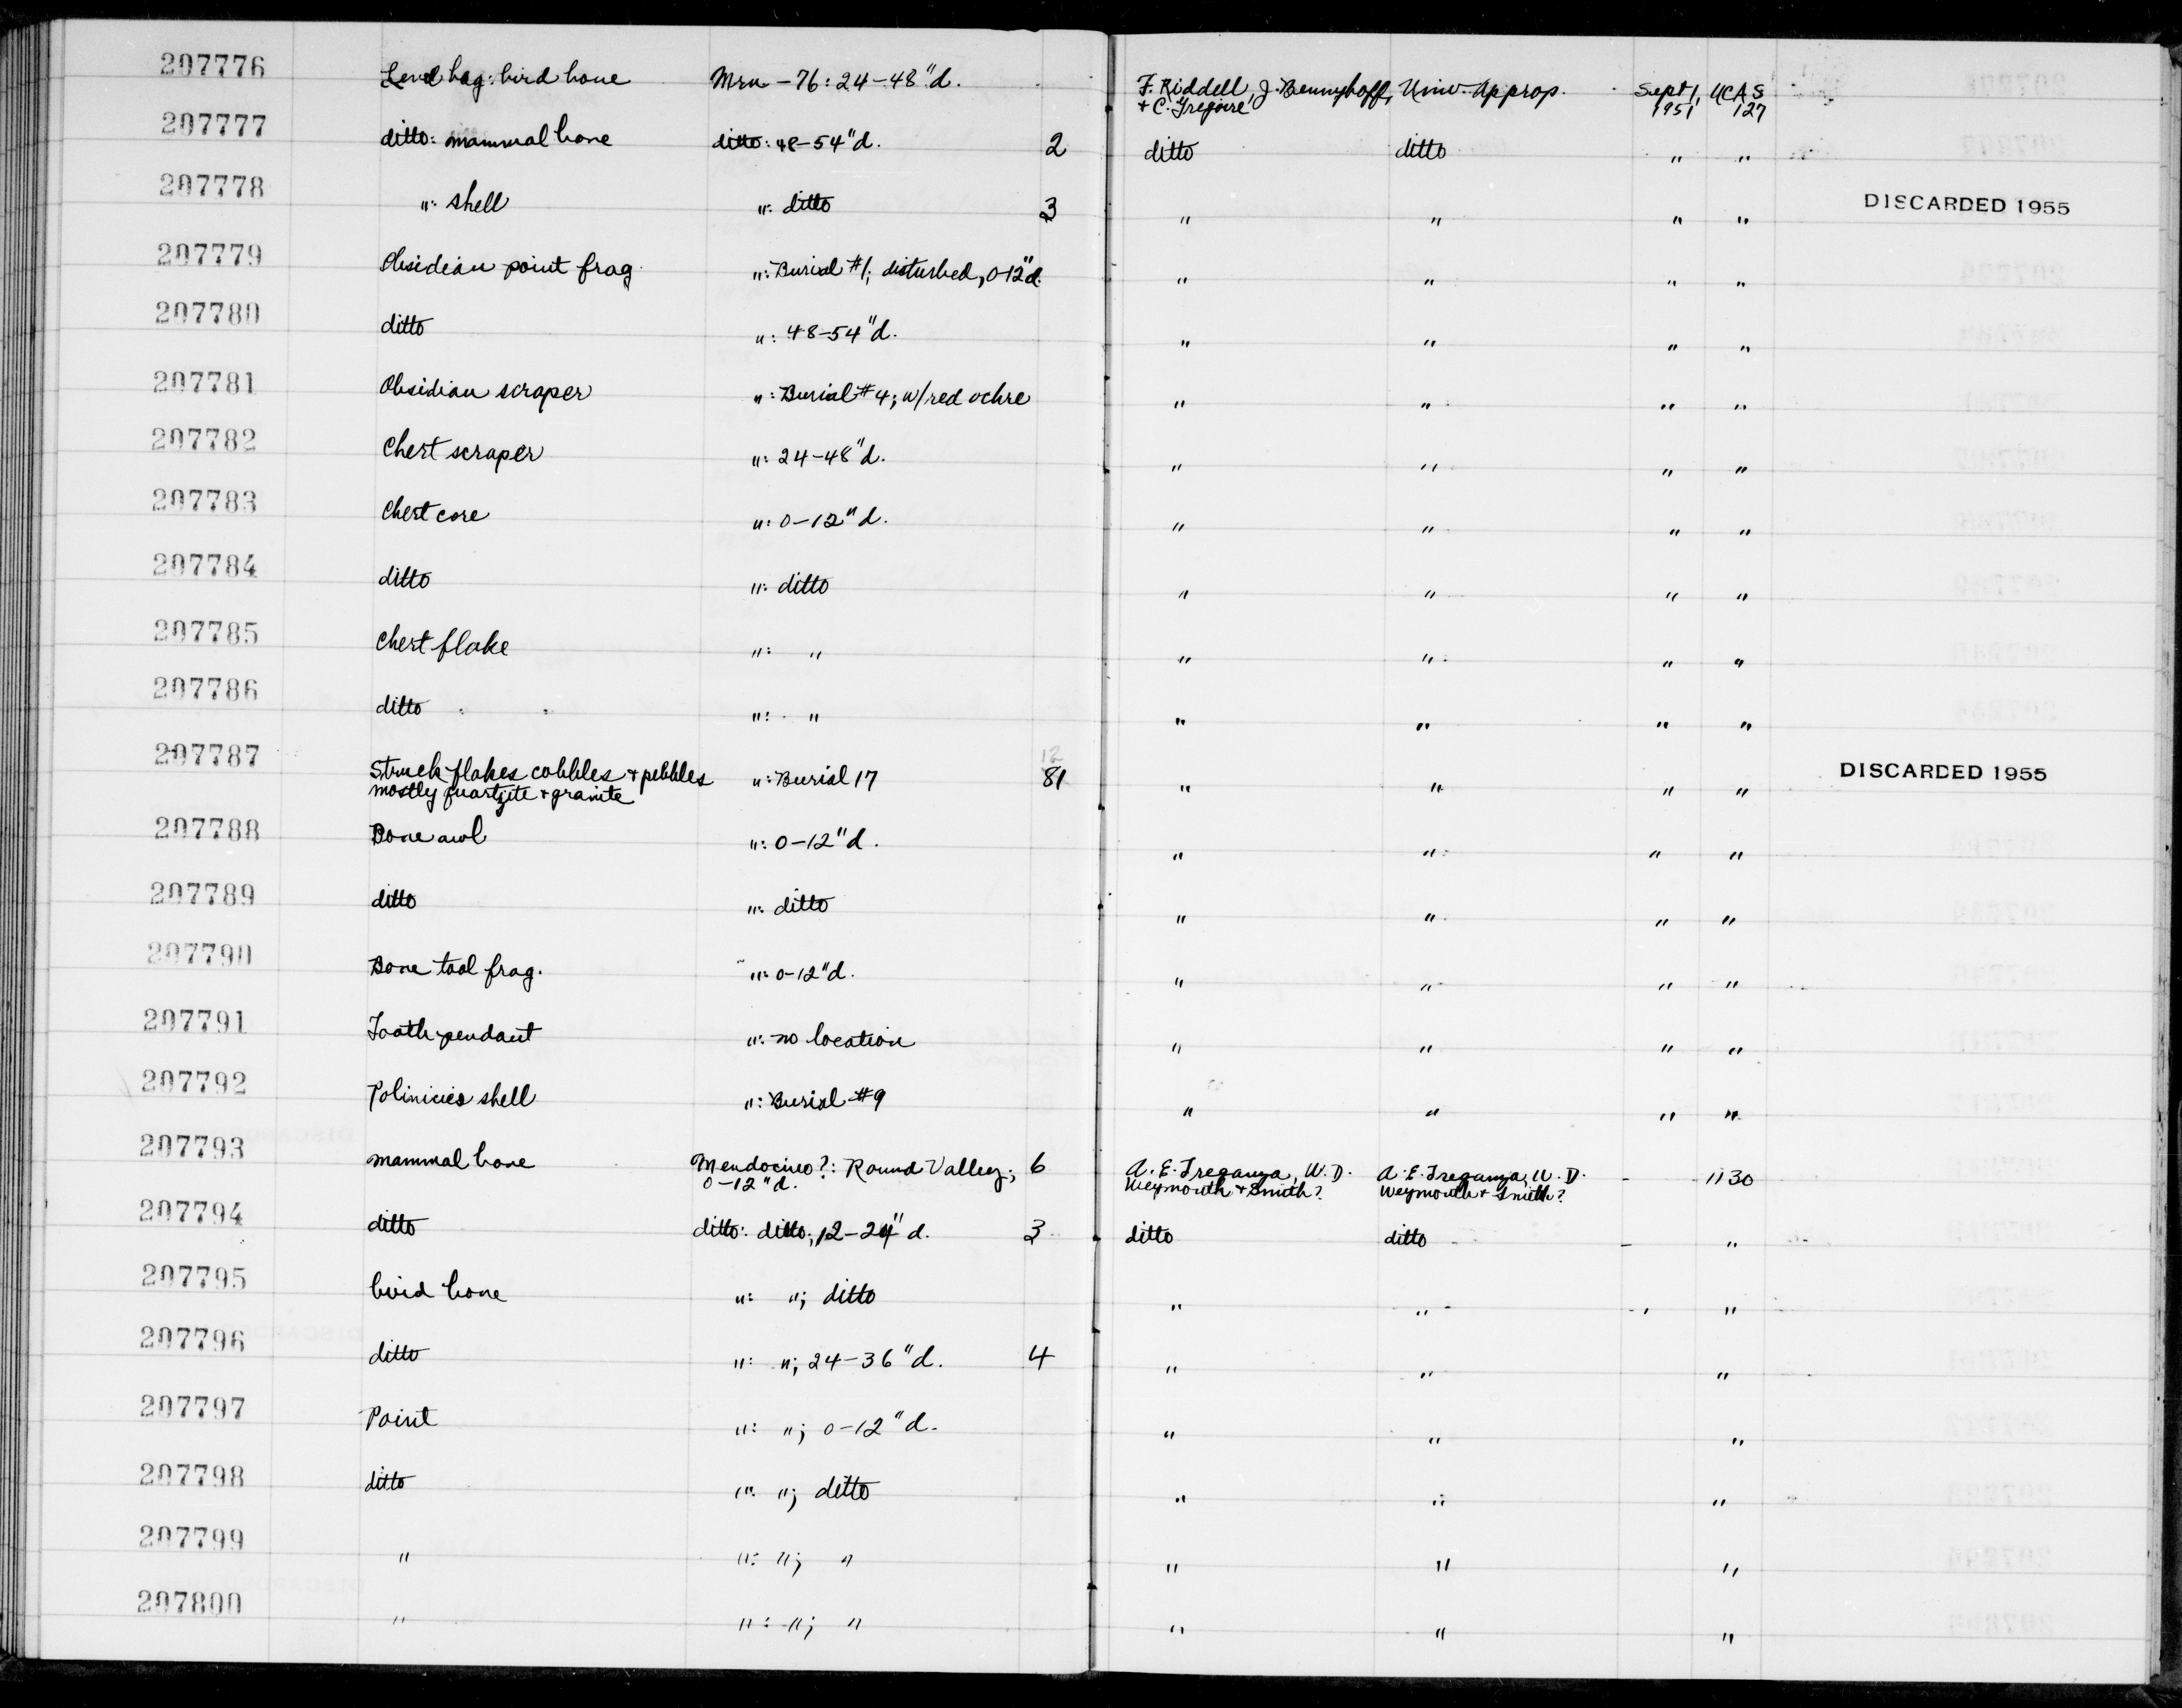 207776 Level bag: bird bone Mrn-76: 24-48"d. F. Riddell, J. Bennyhoff, Univ. Approp. Sept 1, UCAS
+ C. Gregoire 1951 127
207777 ditto: mammal bone ditto: 48-54"d. 2 ditto ditto " "
207778 ": shell ": ditto 3 " " " " DISCARDED 1955
207779 Obsidian point frag. ": Burial #1; disturbed, 0-12"d. " " " "
207780 ditto ": 48-54"d. " " " "
207781 Obsidian scraper ": Burial #4; w/red ochre " " " "
207782 Chert scraper ": 24-48"d. " " " "
207783 Chert core ": 0-12"d. " " " "
207784 ditto ": ditto " " " "
207785 Chert flake ": " " " " "
207786 ditto ": " " " " "
207787 Struck flakes cobbles + pebbles ": Burial 17 12 81 " " " " DISCARDED 1955
mostly quartzite + granite
207788 Bone awl ": 0-12"d. " " " "
207789 ditto ": ditto " " " "
207790 Bone tool frag. ": 0-12"d. " " " "
207791 Tooth pendant ": no location " " " "
207792 Polinicies shell ": Burial #9 " " " "
207793 mammal bone Mendocino?: Round Valley; 6 A. E. Treganza, W. D. A. E. Treganza, W. D. - 1130
0-12"d. Weymouth + Smith? Weymouth + Smith?
207794 ditto ditto: ditto; 12-24"d. 3 ditto ditto - "
207795 bird bone ": "; ditto " " " "
207796 ditto ": "; 24-36"d. 4 " " "
207797 Point ": "; 0-12"d. " " "
207798 ditto ": "; ditto " " "
207799 " ": "; " " " "
207800 " ": "; " " " "